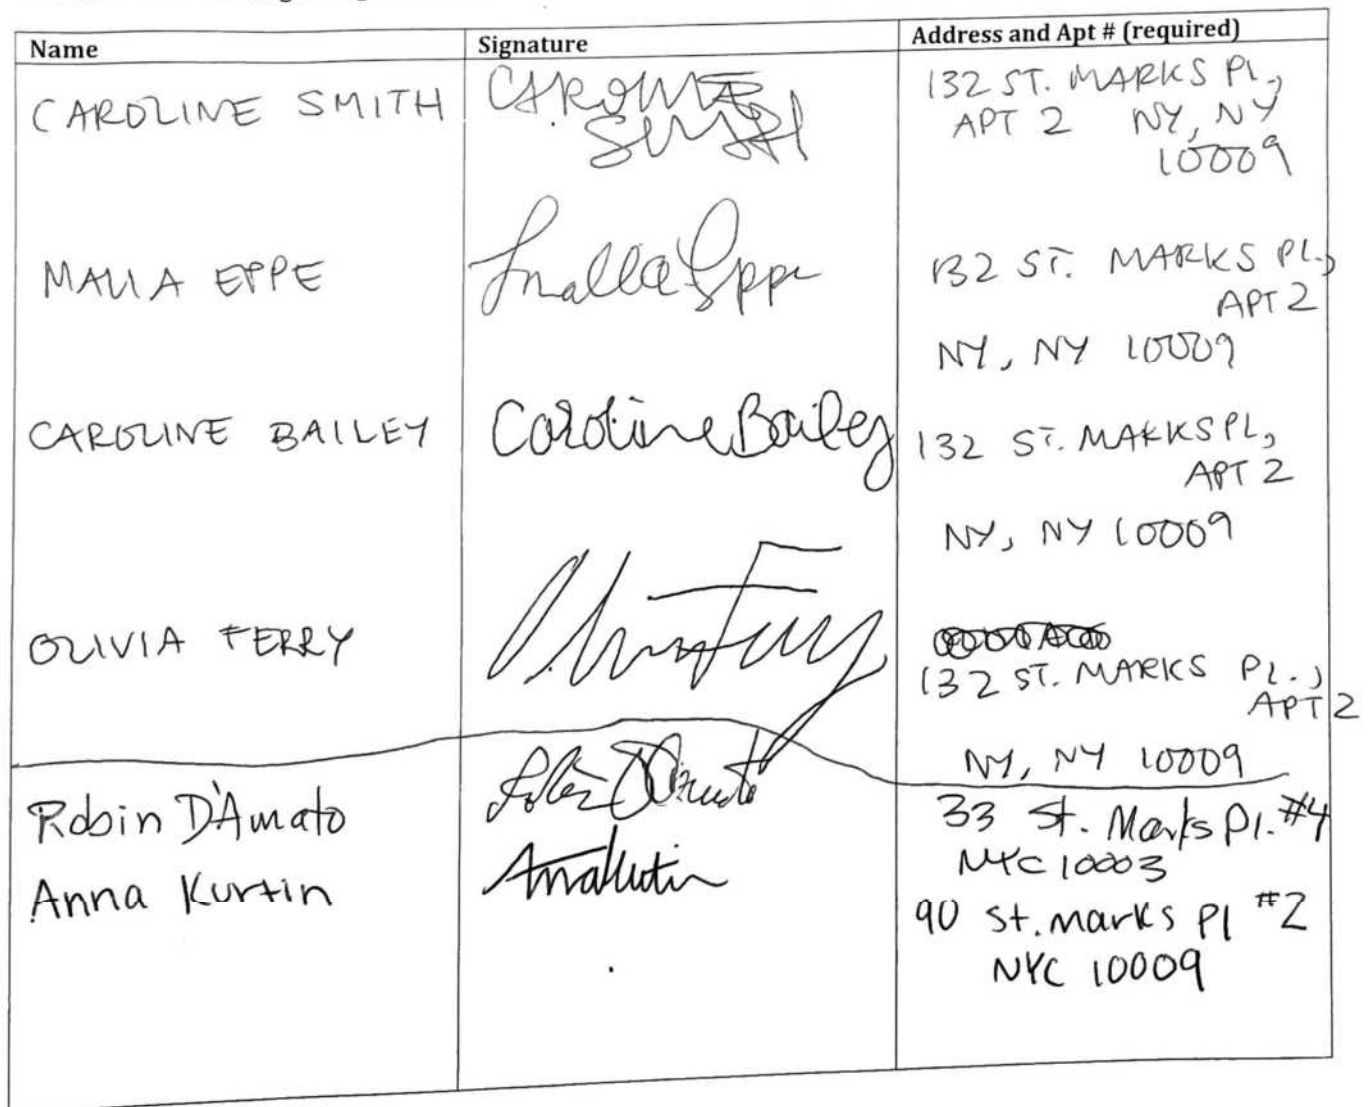 Name Signature Address and Apt # (required)
CAROLINE SMITH CAROLINE 132 ST. MARKS PL.,
SMITH APT 2 NY, NY
10009
MALIA EPPE Malia Eppe 132 ST. MARKS PL.,
APT 2
NY, NY 10009
CAROLINE BAILEY Caroline Bailey 132 ST. MARKS PL,
APT 2
NY, NY 10009
OLIVIA FERRY
132 ST. MARKS PL.,
APT 2
NY, NY 10009
Robin D'Amato 33 St. Marks Pl. #4
NYC 10003
Anna Kurtin
90 St. marks Pl #2
NYC 10009